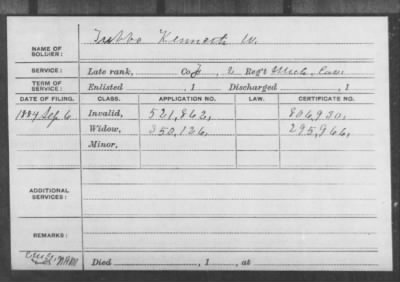 Tubbs Kenneth W.
NAME OF SOLDIER:
SERVICE: Late rank, Co. F, 2 Reg't Mich. Cav.
TERM OF SERVICE: Enlisted , 1 Discharged , 1
DATE OF FILING. CLASS. APPLICATION NO. LAW. CERTIFICATE NO.
1884 Sep. 6 Invalid, 521,862, 806,930,
Widow, 350,126, 295,966,
Minor,
ADDITIONAL SERVICES:
REMARKS:
Died , 1 , at